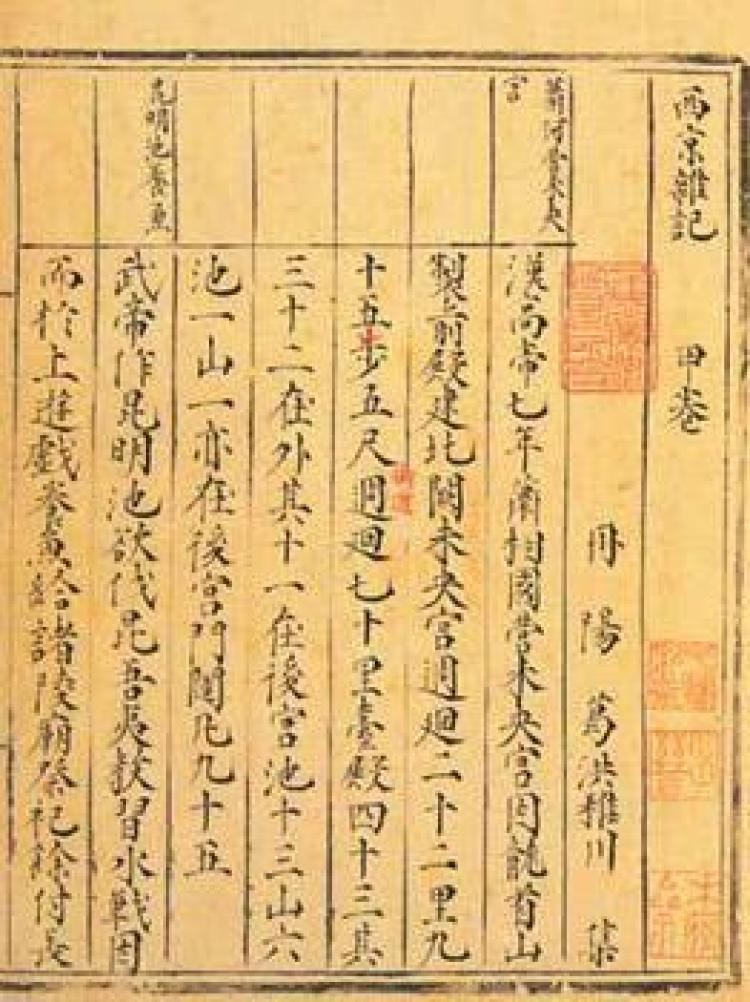 西京雜記 甲卷
丹陽 葛洪稚川 集
蕭何營未央宮
漢高帝七年蕭相國營未央宮因龍首山
製前殿建北闕未央宮週迴二十二里九
十五步五尺週迴七十里臺殿四十三其
三十二在外其十一在後宮池十三山六
池一山一亦在後宮門闥凡九十五
昆明池養魚
武帝作昆明池欲伐昆吾夷教習水戰因
而於上遊戲養魚給諸陵廟祭祀餘付長